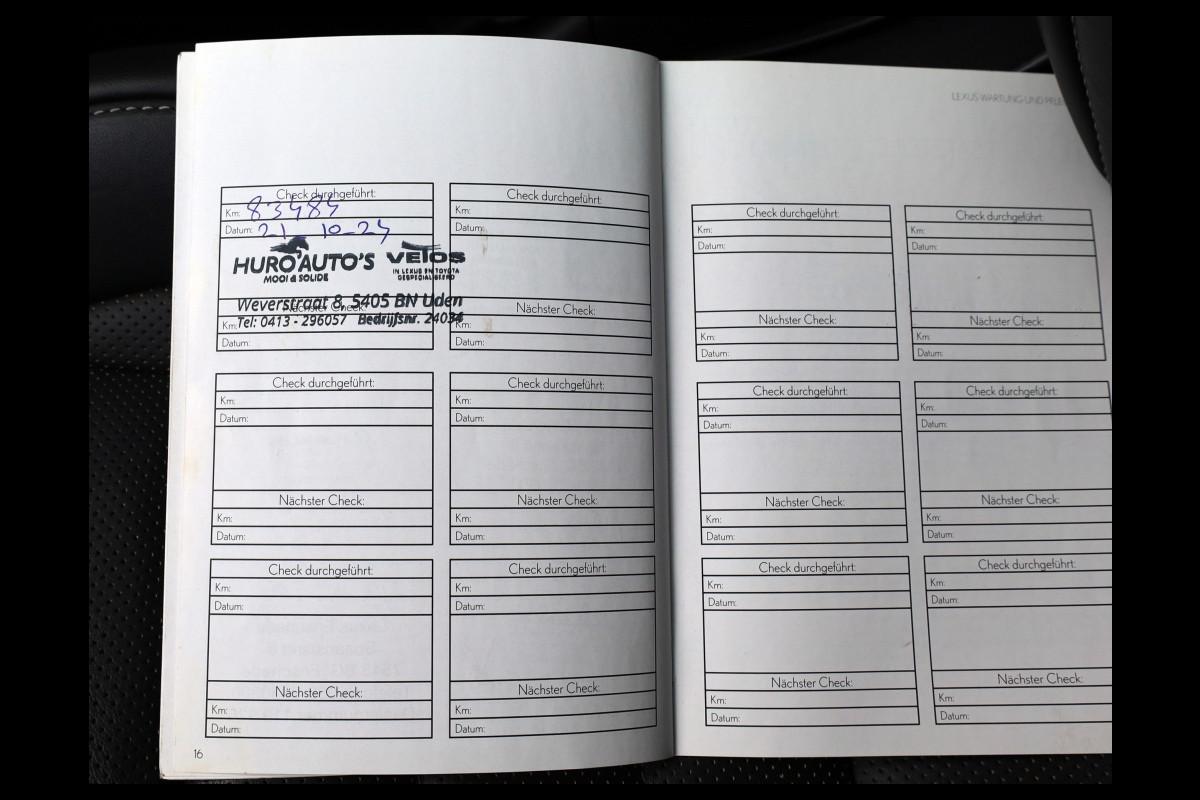 LEXUS WARTUNG UND PFLE
Check durchgeführt:
Km: 83484
Datum: 21-10-24
HURO AUTO'S
MOOI & SOLIDE
VELOS
IN LEXUS EN TOYOTA
GESPECIALISEERD
Weverstraat 8, 5405 BN Uden
Nächster Check:
Km:
Tel: 0413 - 296057 Bedrijfsnr. 24034
Datum:
Check durchgeführt:
Km:
Datum:
Nächster Check:
Km:
Datum:
Check durchgeführt:
Km:
Datum:
Nächster Check:
Km:
Datum:
Check durchgeführt:
Km:
Datum:
Nächster Check:
Km:
Datum:
Check durchgeführt:
Km:
Datum:
Nächster Check:
Km:
Datum:
Check durchgeführt:
Km:
Datum:
Nächster Check:
Km:
Datum:
16
Check durchgeführt:
Km:
Datum:
Nächster Check:
Km:
Datum:
Check durchgeführt:
Km:
Datum:
Nächster Check:
Km:
Datum:
Check durchgeführt:
Km:
Datum:
Nächster Check:
Km:
Datum:
Check durchgeführt:
Km:
Datum:
Nächster Check:
Km:
Datum:
Check durchgeführt:
Km:
Datum:
Nächster Check:
Km:
Datum:
Check durchgeführt:
Km:
Datum:
Nächster Check:
Km:
Datum: